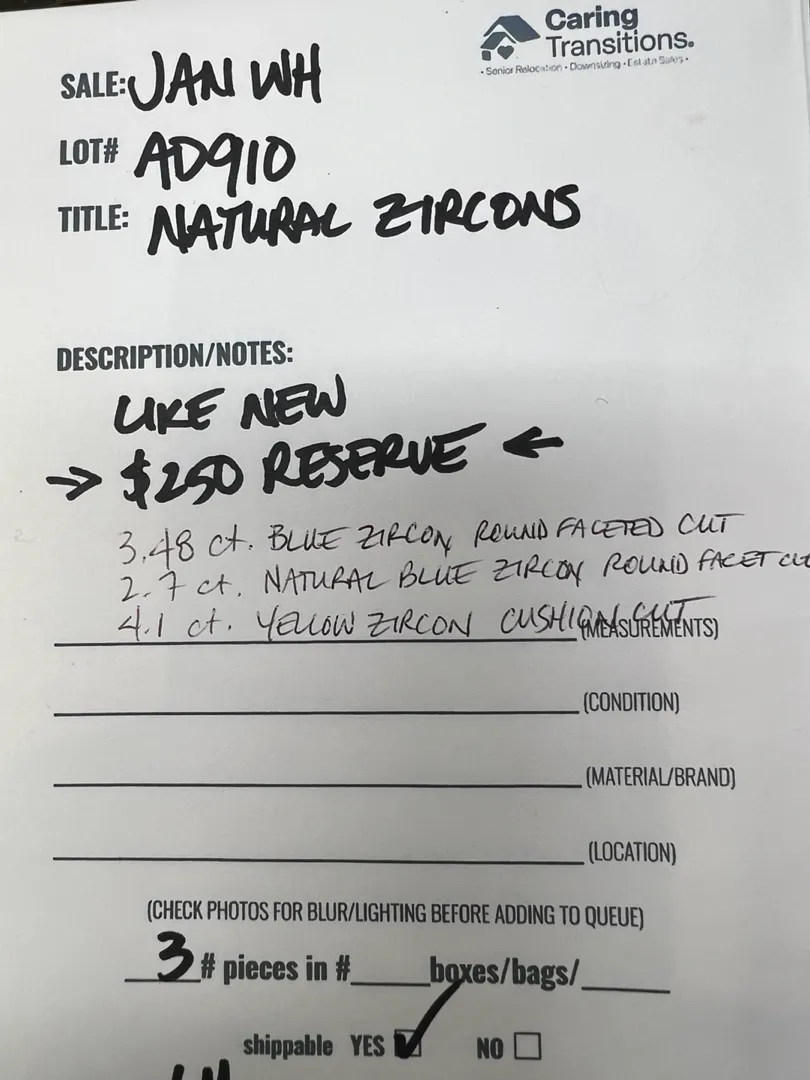 Caring
Transitions.
• Senior Relocation • Downsizing • Estate Sales •
SALE: JAN WH
LOT# AD910
TITLE: NATURAL ZIRCONS
DESCRIPTION/NOTES:
LIKE NEW
→ $250 RESERVE ←
3.48 ct. BLUE ZIRCON, ROUND FACETED CUT
2.7 ct. NATURAL BLUE ZIRCON ROUND FACET
4.1 ct. YELLOW ZIRCON CUSHION CUT
(MEASUREMENTS)
(CONDITION)
(MATERIAL/BRAND)
(LOCATION)
(CHECK PHOTOS FOR BLUR/LIGHTING BEFORE ADDING TO QUEUE)
3 # pieces in #____boxes/bags/____
shippable YES ☑ NO ☐